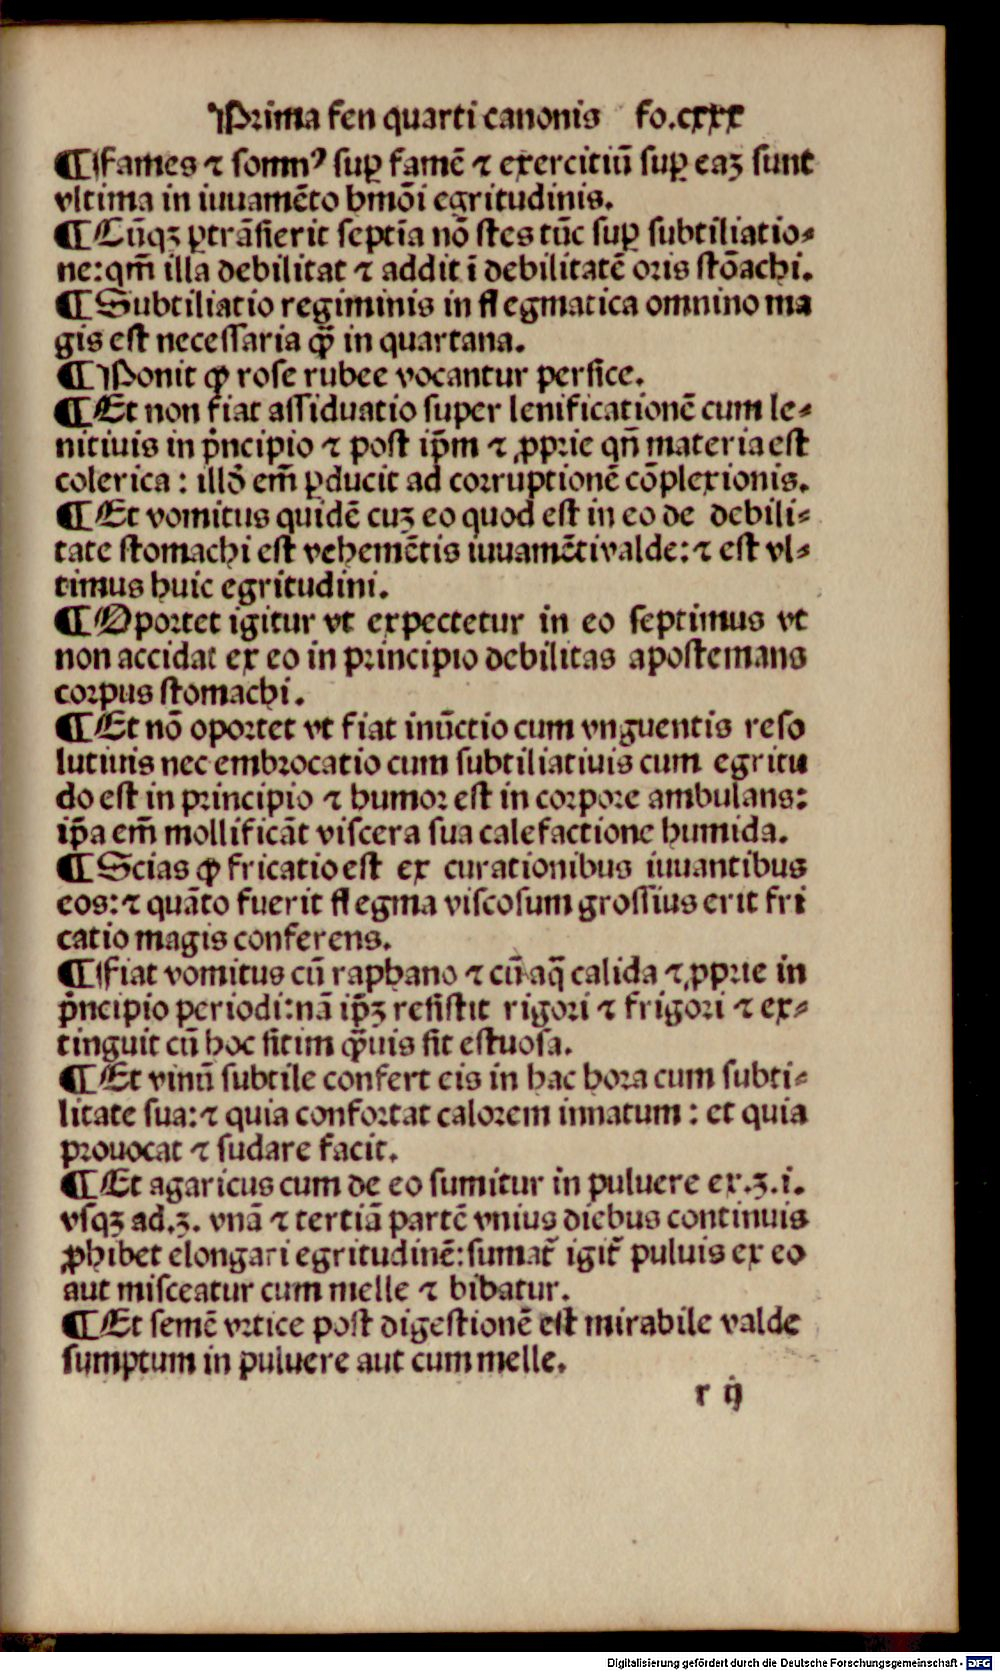 Prima fen quarti canonis fo.cxxx
¶ Fames ⁊ somnꝰ suꝑ famē ⁊ exercitiū suꝑ eaꝫ sunt
vltima in iuuamēto hmōi egritudinis.
¶ Cūqꝫ ꝑtrāsierit septīa nō stes tūc suꝑ subtiliatio⸗
ne:qm̄ illa debilitat ⁊ addit ī debilitatē oris stōachi.
¶ Subtiliatio regiminis in flegmatica omnino ma
gis est necessaria ꝙ̄ in quartana.
¶ Ponit ꝙ rose rubee vocantur persice.
¶ Et non fiat assiduatio super lenificationē cum le⸗
nitiuis in pͥncipio ⁊ post ip̄m ⁊ ꝓprie qn̄ materia est
colerica: illḋ em̄ ꝑducit ad corruptionē cōplexionis.
¶ Et vomitus quidē cuꝫ eo quod est in eo de debili⸗
tate stomachi est vehemētis iuuamētivalde:⁊ est vl⸗
timus huic egritudini.
¶ Oportet igitur vt expectetur in eo septimus vt
non accidat ex eo in principio debilitas apostemans
corpus stomachi.
¶ Et nō oportet vt fiat inūctio cum vnguentis reso
lutiuis nec embrocatio cum subtiliatiuis cum egritu
do est in principio ⁊ humor est in corpore ambulans:
ip̄a em̄ mollificāt viscera sua calefactione humida.
¶ Scias ꝙ fricatio est ex curationibus iuuantibus
eos:⁊ quāto fuerit flegma viscosum grossius erit fri
catio magis conferens.
¶ Fiat vomitus cū raphano ⁊ cū aq̄ calida ⁊ ꝓprie in
pͥncipio periodi:nā ip̄ꝫ resistit rigori ⁊ frigori ⁊ ex⸗
tinguit cū hoc sitim ꝙ̄uis sit estuosa.
¶ Et vinū subtile confert eis in hac hora cum subti⸗
litate sua:⁊ quia confortat calorem innatum: et quia
prouocat ⁊ sudare facit.
¶ Et agaricus cum de eo sumitur in puluere ex.ʒ.i.
vsqꝫ ad.ʒ. vnā ⁊ tertiā partē vnius diebus continuis
ꝓhibet elongari egritudinē:sumat̄ igit̄ puluis ex eo
aut misceatur cum melle ⁊ bibatur.
¶ Et semē vrtice post digestionē est mirabile valde
sumptum in puluere aut cum melle.
r ij
Digitalisierung gefördert durch die Deutsche Forschungsgemeinschaft - DFG